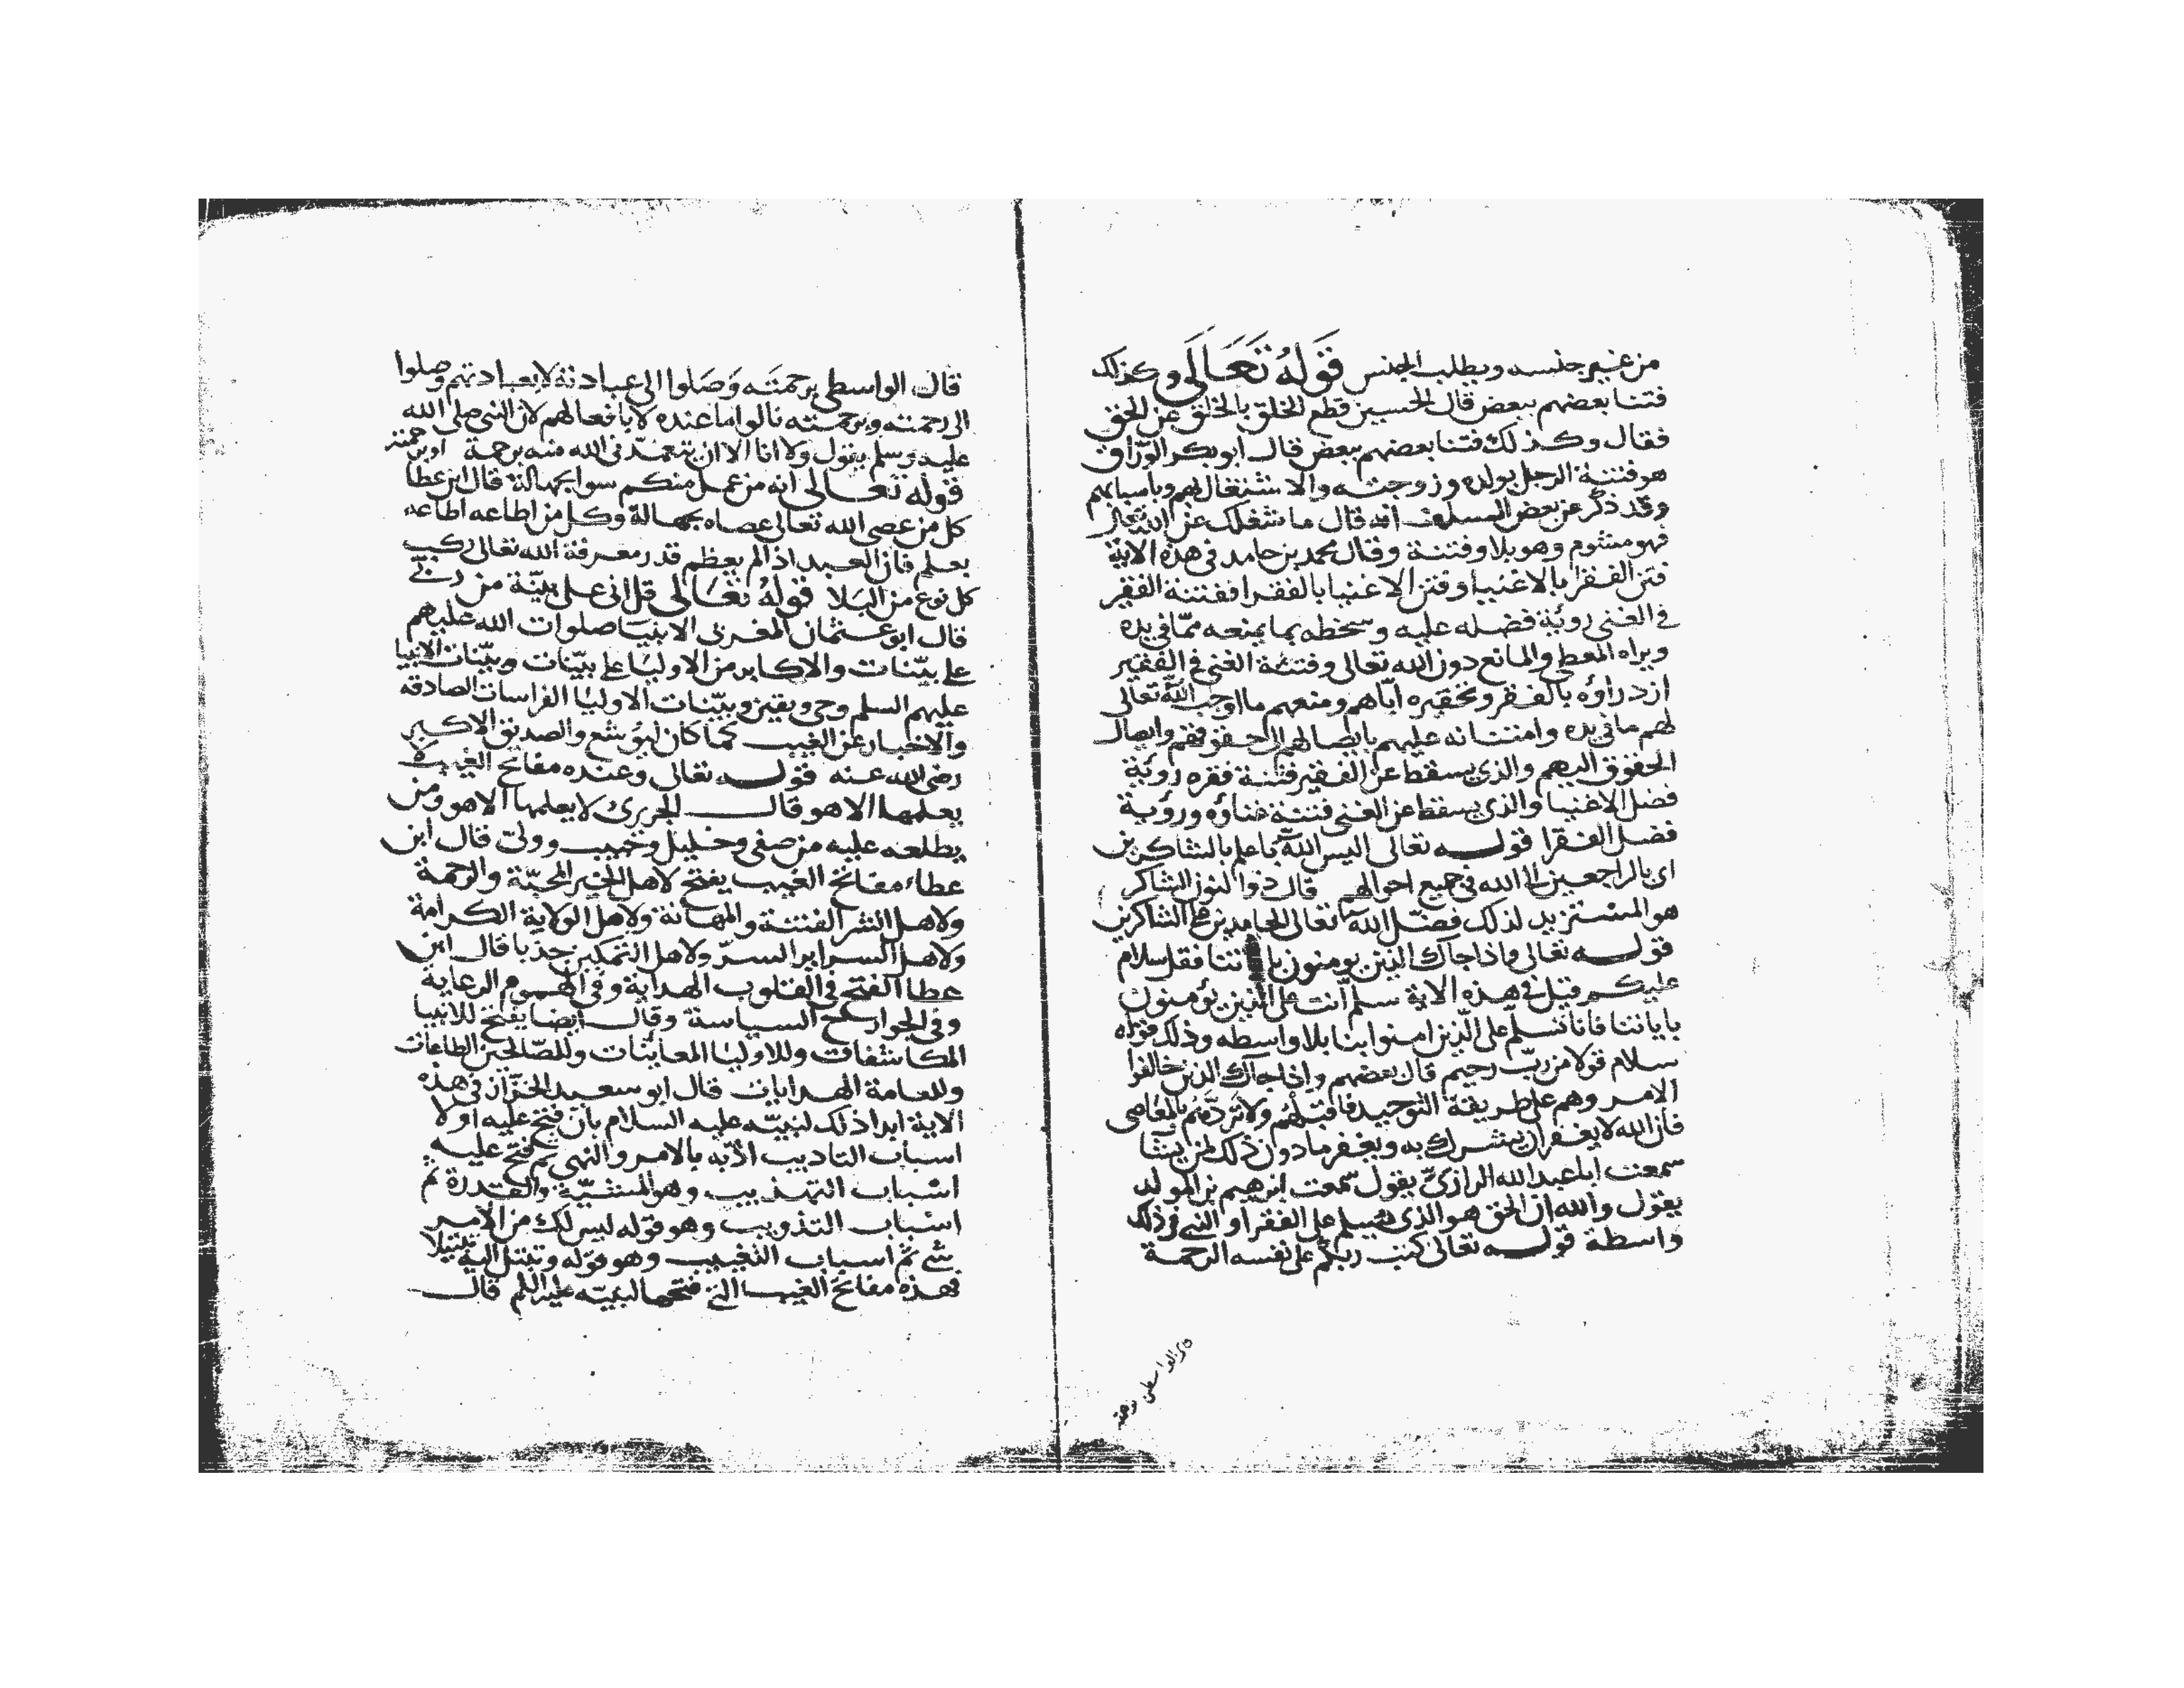 من غير جنسه ويطلب الجنس قَوْلهُ تَعَالَى وكذلك
فتنا بعضهم ببعض قال الحسين قطع الخلق بالخلق عن الحق
فقال وكذلك فتنا بعضهم ببعض قال ابو بكر الورّاق
هو فتنة الرجل بولده وزوجته والاشتغال بهم وباسبابهم
وقد ذكر عن بعض السلف انه قال ما شغلك عن الله تعالى
فهو مشئوم وهو بلا وفتنة وقال محمد بن حامد في هذه الاية
فتن الفقرا بالاغنيا وفتن الاغنيا بالفقرا ففتنة الفقير
في الغنى روئية فضله عليه وسخطه بما يمنعه ممّا في يده
ويراه المعطى والمانع دون الله تعالى وفتنة الغنى في الفقير
ازدراؤه بالفقر وتحقيره ايّاهم ومنعهم ما اوجب الله تعالى
لهم ما في يده وامتنانه عليهم بايصالهم الى حقوقهم وايصال
الحقوق اليهم والذى يسقط عن الفقير فتنة فقره روئية
فضل الاغنيا والذى يسقط عن الغنى فتنة غناؤه وروئية
فضل الفقرا قوله تعالى اليس الله باعلم بالشاكرين
اى بالراجعين الى الله في جميع احوالهم قال ذوا النون الشاكر
هو المستزيد لذلك فضّل الله تعالى الحامدين على الشاكرين
قوله تعالى واذا جاك الذين يومنون باياتنا فقل سلام
عليكم قيل في هذه الاية سلم انت على الذين يؤمنون
باياتنا فانا نسلّم على الّذين امنوا بنا بلا واسطه وذلك قوله
سلام قولا من ربّ رحيم قال بعضهم واذا جاك الذين خالفوا
الامر وهم على طريقة التوحيد فاقبلهم ولا تردّهم بالمعاصى
فان الله لا يغفر ان يشرك به ويغفر ما دون ذلك لمن يشا
سمعت ابا عبد الله الرازىّ يقول سمعت ابرهيم بن المولد
يقول والله ان الحق هو الذى يسلم على الفقرا والنبي في ذلك
واسطة قوله تعالى كتب ربكم على نفسه الرحمة
قال الواسطى برحمته
قال الواسطى برحمتَه وَصَلوا الى عبادته لا بعبادتهم وصلوا
الى رحمته وبرحمته نالوا ما عنده لا بافعالهم لان النبي صلى الله
عليه وسلم يقول ولا انا الا ان يتغمّدنى الله منه برحمة
قوله تعالى انه من عمل منكم سوا بجهالة قال ابن عطا
كل من عصى الله تعالى عصاه بجهالة وكل من اطاعه اطاعه
بعلم فان العبد اذا لم يعظم قدر معرفة الله تعالى ركب
كل نوع من البلا قَولهُ تَعَالى قل انى على بيّنة من ربّي
قال ابو عثمان المغربى الانبيَا صلوات الله عليهم
على بيّنات والاكابر من الاوليَا على بيّنات وبيّنات الانبيا
عليهم السلم وحى ويقين وبيّنات الاوليَا الفراسات الصادقه
والاخبار عن الغيب كما كان ليوشع والصديق الاكبر
رضى الله عنه قوله تعالى وعنده مفاتح الغيب لا
يعلمها الا هو قال الجريرىّ لا يعلمها الا هو ومن
يطلعه عليه من صفى وخليل وحبيب وولىّ قال ابن
عطاء مفاتح الغيب يفتح لاهل الخير المحبّة والرحمة
ولاهل الشر الفتنة والمهانة ولاهل الولاية الكرامة
ولاهل السراير السرّ ولاهل التمكين جذبا قال ابن
عطا الفتح في القلوب الهداية وفي الهموم الرعاية
وفي الجوارح السياسة وقال ايضا يفتح للانبيا
المكاشفات وللاوليا المعاينات وللصّالحين الطاعات
وللعامة الهدايات قال ابو سعيد الخرّاز في هذه
الاية ابدا ذلك لنبيّه عليه السلام بان فتح عليه اولا
اسباب التاديب ادّبه بالامر والنهى ثم فتح عليه
اسباب التهذيب وهو المشيّة والقدرة ثم
اسباب التذويب وهو قوله ليس لك من الامر
شي ثم اسباب التغييب وهو قوله وتبتل اليه تبتيلا
فهذه مفاتح الغيب التي فتحها لنبيّه عليه السلم قال